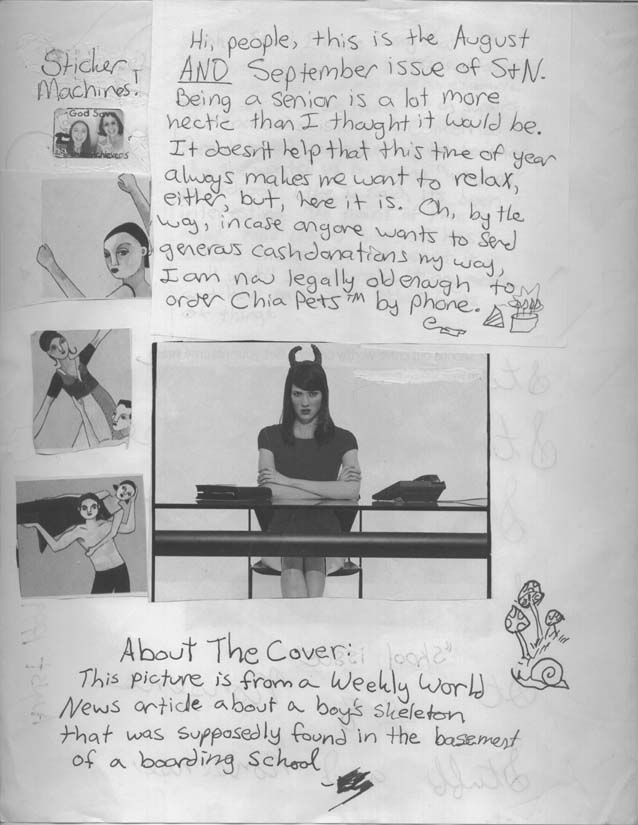 Sticker
Machines!
God Sav
Hi, people, this is the August
AND September issue of S+N.
Being a senior is a lot more
hectic than I thought it would be.
It doesn't help that this time of year
always makes me want to relax,
either, but, here it is. Oh, by the
way, incase anyone wants to send
generous cash donations my way,
I am now legally old enough to
order Chia Pets™ by phone.
About The Cover:
This picture is from a Weekly World
News article about a boy's skeleton
that was supposedly found in the basement
of a boarding school